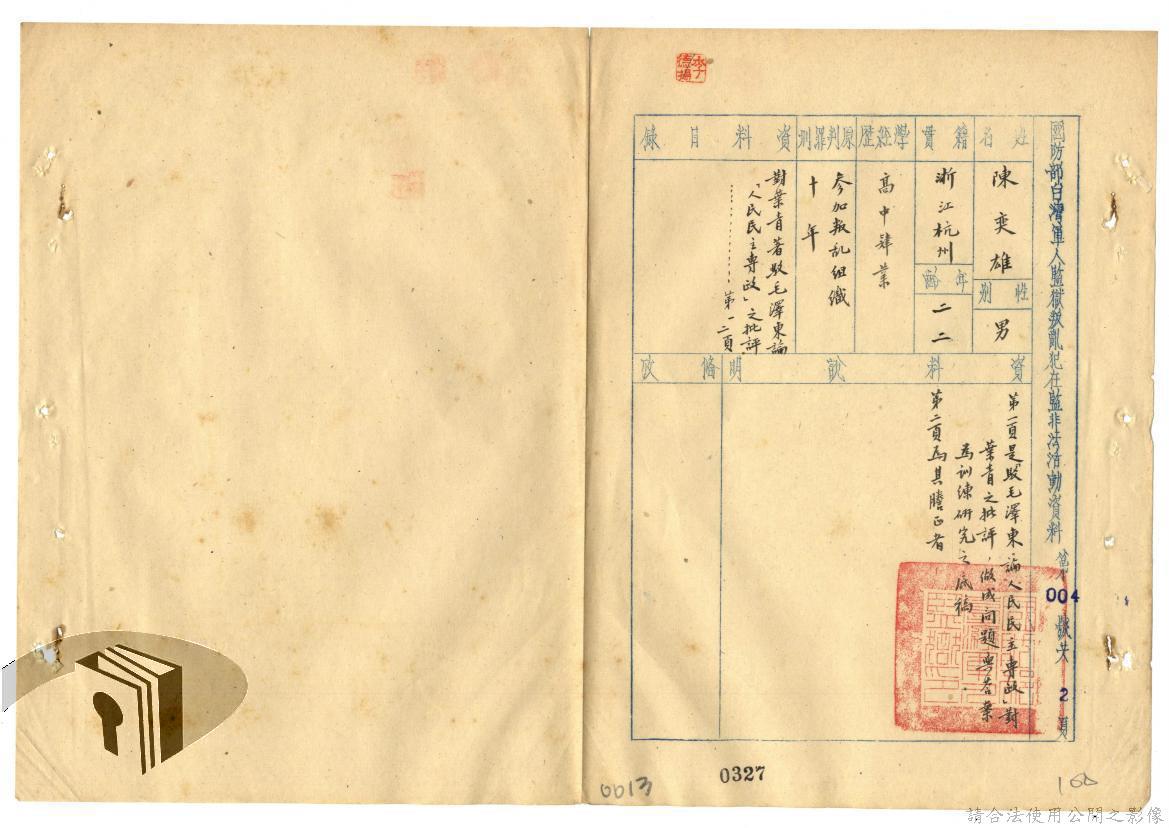 國防部台灣軍人監獄叛亂犯在監非法活動資料 第 004 號共 2 頁
姓名
陳奕雄
性別
男
籍貫
浙江杭州
年齡
二二
學經歷
高中肄業
原判罪刑
參加叛乱組織
十年
資料目錄
對葉青著駁毛澤東論
「人民民主專政」之批評
第一二頁
資料說明
第一頁是「駁毛澤東論人民民主專政」對
葉青之批評,做成問題與答案
為訓練研究之底稿
第二頁為其謄正者
備攷
0327
0013
100
請合法使用公開之影像